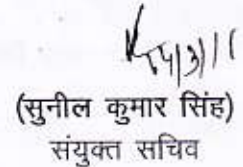 (सुनील कुमार सिंह)
संयुक्त सचिव